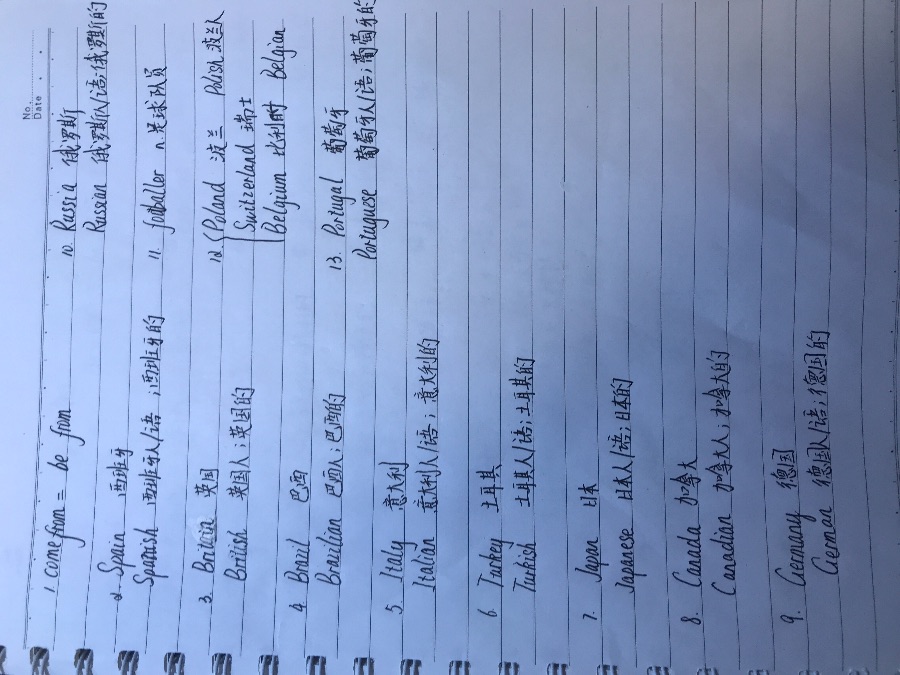 No.
Date
1. come from = be from
2. Spain 西班牙
Spanish 西班牙人/语;西班牙的
3. Britain 英国
British 英国人;英国的
4. Brazil 巴西
Brazilian 巴西人;巴西的
5. Italy 意大利
Italian 意大利人/语;意大利的
6. Turkey 土耳其
Turkish 土耳其人/语;土耳其的
7. Japan 日本
Japanese 日本人/语;日本的
8. Canada 加拿大
Canadian 加拿大人;加拿大的
9. Germany 德国
German 德国人/语;德国的
10. Russia 俄罗斯
Russian 俄罗斯人/语;俄罗斯的
11. footballer n.足球队员
12. Poland 波兰 Polish 波兰人
Switzerland 瑞士
Belgium 比利时 Belgian
13. Portugal 葡萄牙
Portuguese 葡萄牙人/语;葡萄牙的